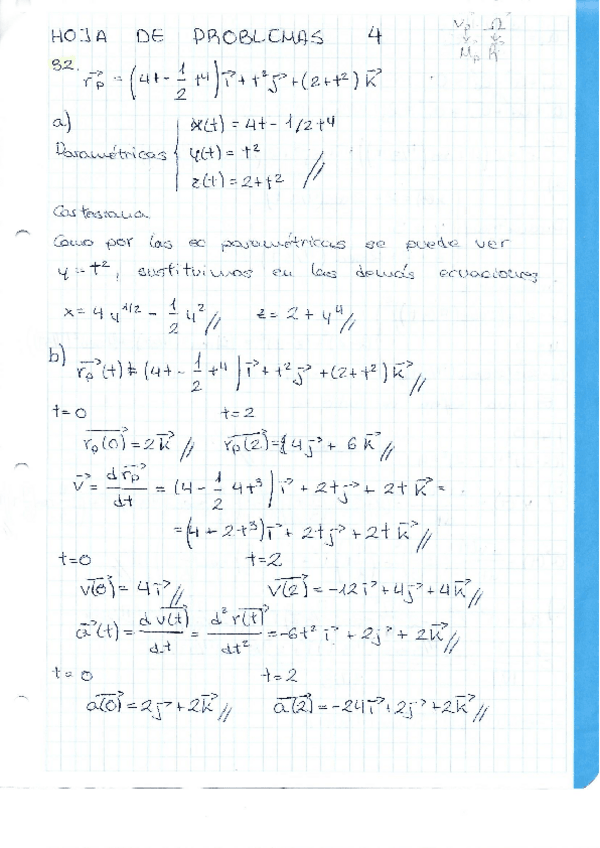 HOJA DE PROBLEMAS 4
32.
r⃗p = (4t - 1/2 t⁴) i⃗ + t² j⃗ + (2+t²) k⃗
a)
Paramétricas { x(t) = 4t - 1/2 t⁴
y(t) = t²
z(t) = 2+t² //
Cartesiana
Como por las ec paramétricas se puede ver
y = t², sustituimos en las demás ecuaciones
x = 4 y^1/2 - 1/2 y² // z = 2 + y⁴ //
b) r⃗p(t) = (4t - 1/2 t⁴) i⃗ + t² j⃗ + (2+t²) k⃗ //
t=0 t=2
r⃗p(0) = 2k⃗ // r⃗p(2) = 4j⃗ + 6k⃗ //
v⃗ = dr⃗p/dt = (4 - 1/2 4t³) i⃗ + 2t j⃗ + 2t k⃗ =
= (4 - 2t³) i⃗ + 2t j⃗ + 2t k⃗ //
t=0 t=2
v⃗(0) = 4i⃗ // v⃗(2) = -12i⃗ + 4j⃗ + 4k⃗ //
a⃗(t) = dv⃗(t)/dt = d²r⃗(t)/dt² = -6t² i⃗ + 2j⃗ + 2k⃗ //
t=0 t=2
a⃗(0) = 2j⃗ + 2k⃗ // a⃗(2) = -24i⃗ + 2j⃗ + 2k⃗ //